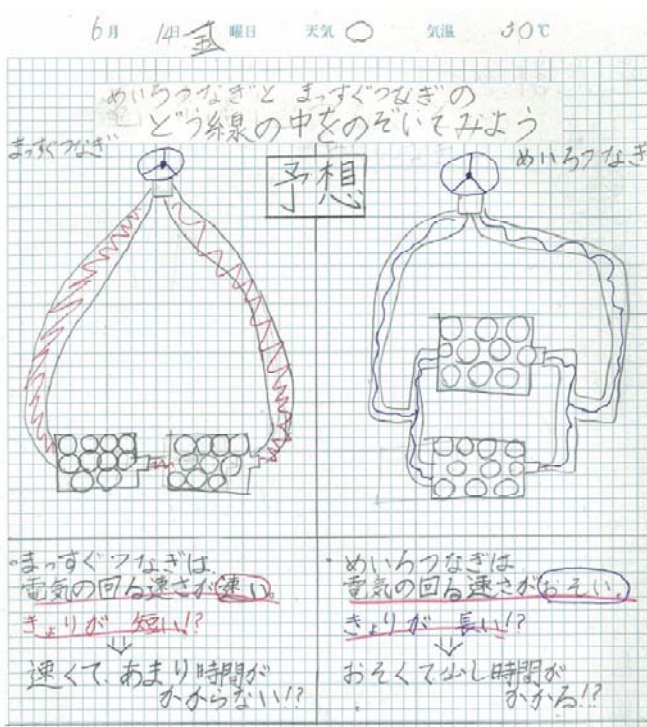 6月 14日 金 曜日 天気 〇 気温 30℃
めいろつなぎと まっすぐつなぎの
どう線の中をのぞいてみよう
まっすぐつなぎ
めいろつなぎ
予想
・まっすぐつなぎは
電気の回る速さが速い。
きょりが 短い!?
↓
速くて、あまり時間が
かからない!?
・めいろつなぎは
電気の回る速さがおそい。
きょりが 長い!?
↓
おそくて少し時間が
かかる!?